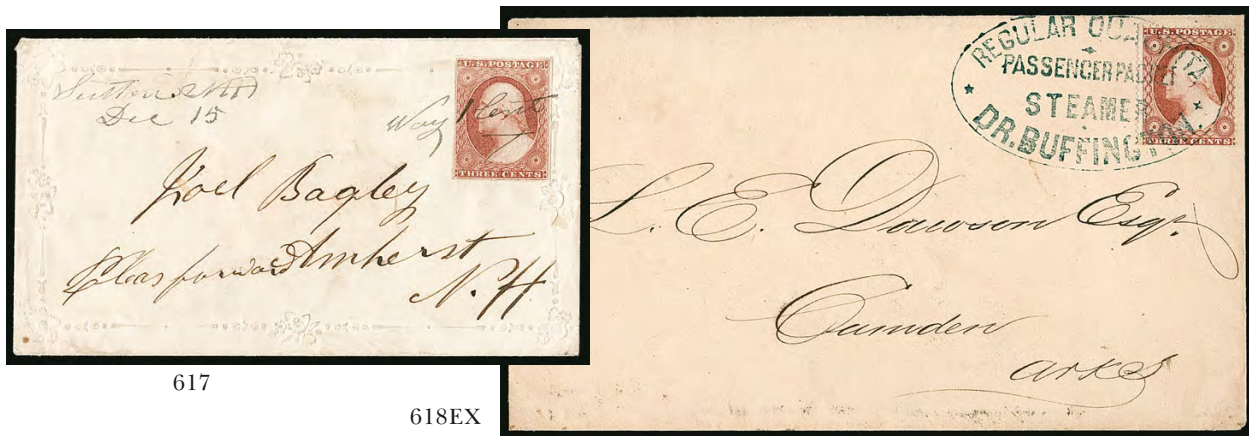 Sutton NH
Dec 15
U.S. POSTAGE
Way 1 Cent
THREE CENTS
Joel Bagley
Pleas forward Amherst
N. H
617
REGULAR OUACHITA
PASSENGER PACKET
STEAMER
DR. BUFFINGTON.
U.S. POSTAGE
THREE CENTS
L. E. Dawson Esqr.
Camden
Arkes
618EX